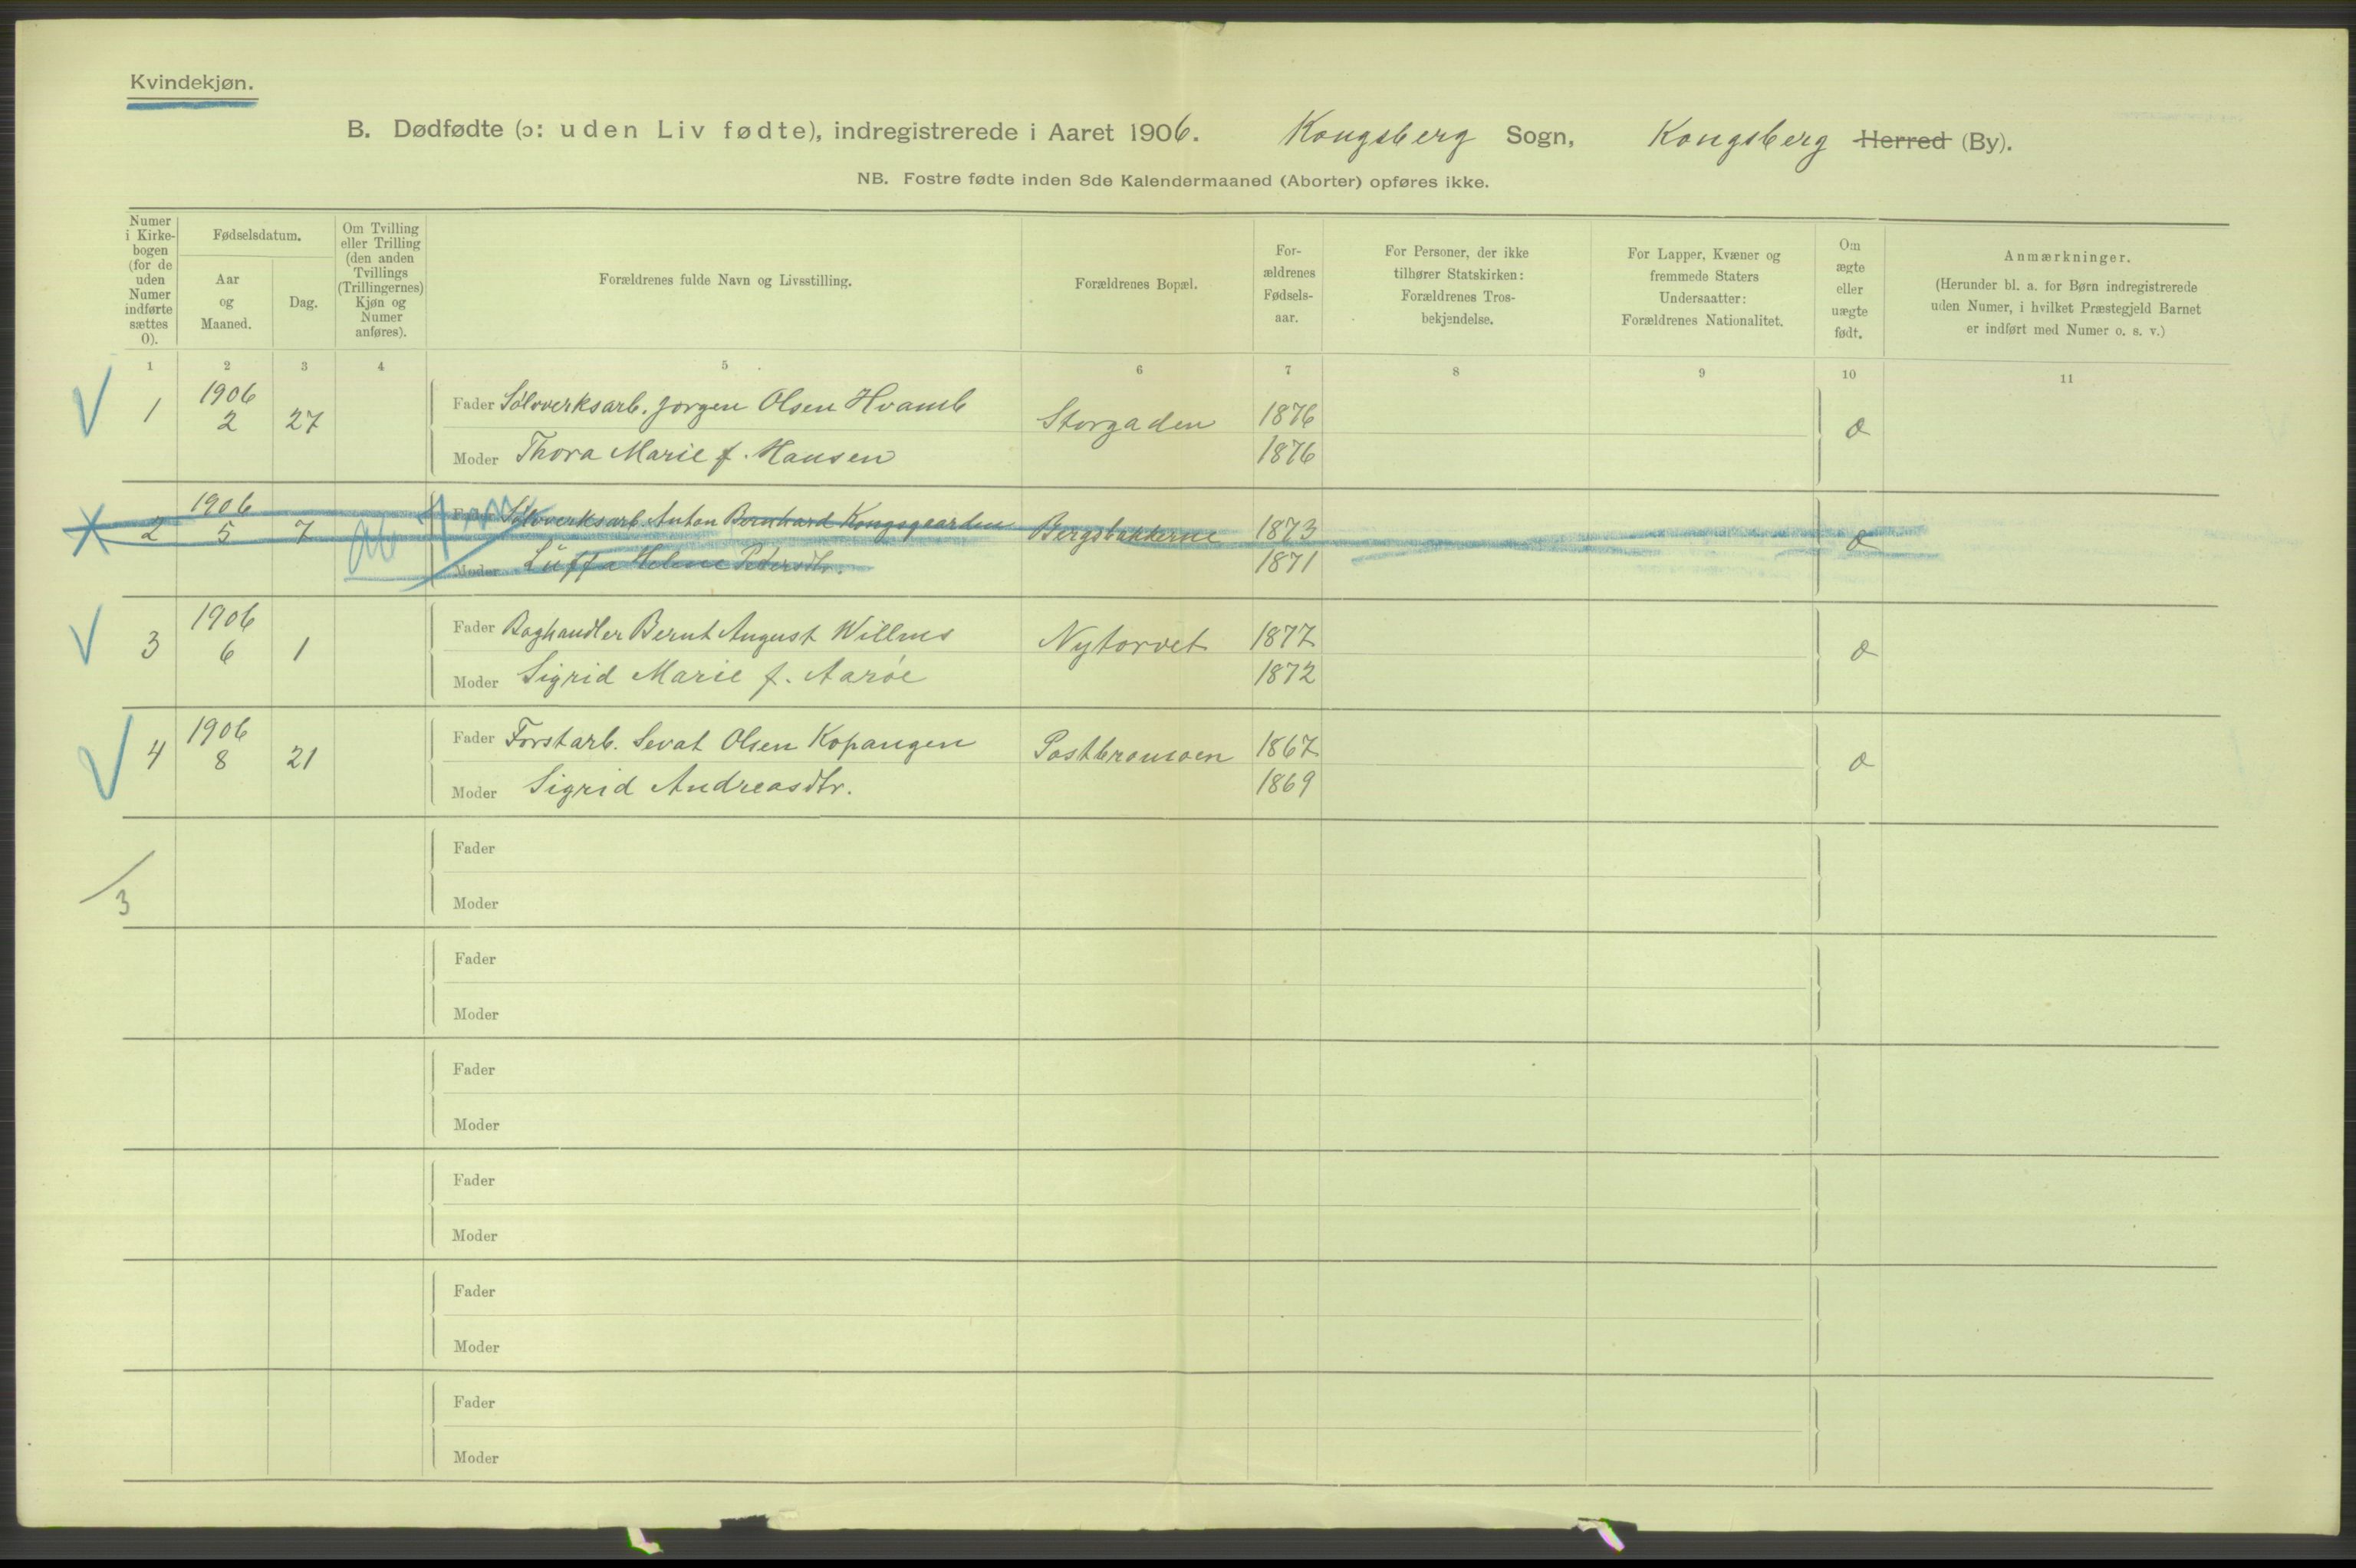 Kvindekjøn.
B. Dødfødte (ɔ: uden Liv fødte), indregistrerede i Aaret 1906. Kongsberg Sogn, Kongsberg Herred (By).
NB. Fostre fødte inden 8de Kalendermaaned (Aborter) opføres ikke.
Numer i Kirke-bogen (for de uden Numer indførte sættes 0).
Fødselsdatum.
Aar og Maaned.
Dag.
Om Tvilling eller Trilling (den anden Tvillings (Trillingernes) Kjøn og Numer anføres).
Forældrenes fulde Navn og Livsstilling.
Forældrenes Bopæl.
For-ældrenes Fødsels-aar.
For Personer, der ikke tilhører Statskirken: Forældrenes Tros-bekjendelse.
For Lapper, Kvæner og fremmede Staters Undersaatter: Forældrenes Nationalitet.
Om ægte eller uægte født.
Anmærkninger.
(Herunder bl. a. for Børn indregistrerede uden Numer, i hvilket Præstegjeld Barnet er indført med Numer o. s. v.)
1 2 3 4 5 6 7 8 9 10 11
1 1906 2 27 Fader Sølvverksarb. Jørgen Olsen Hvamb Storgaden 1876 æ
Moder Thora Marie f. Hansen 1876
2 1906 5 7 Fader Sølvverksarb. Anton Bernhard Kongsgaarden Bergsbakkerne 1873 æ
Moder Helene Pedersdtr. 1871
3 1906 6 1 Fader Boghandler Bernt August Willms Nytorvet 1877 æ
Moder Sigrid Marie f. Aarøe 1872
4 1906 8 21 Fader Forstarb. Sevat Olsen Kopangen 1867 æ
Moder Sigrid Andreasdtr. 1869
Fader
3
Moder
Fader
Moder
Fader
Moder
Fader
Moder
Fader
Moder
Fader
Moder